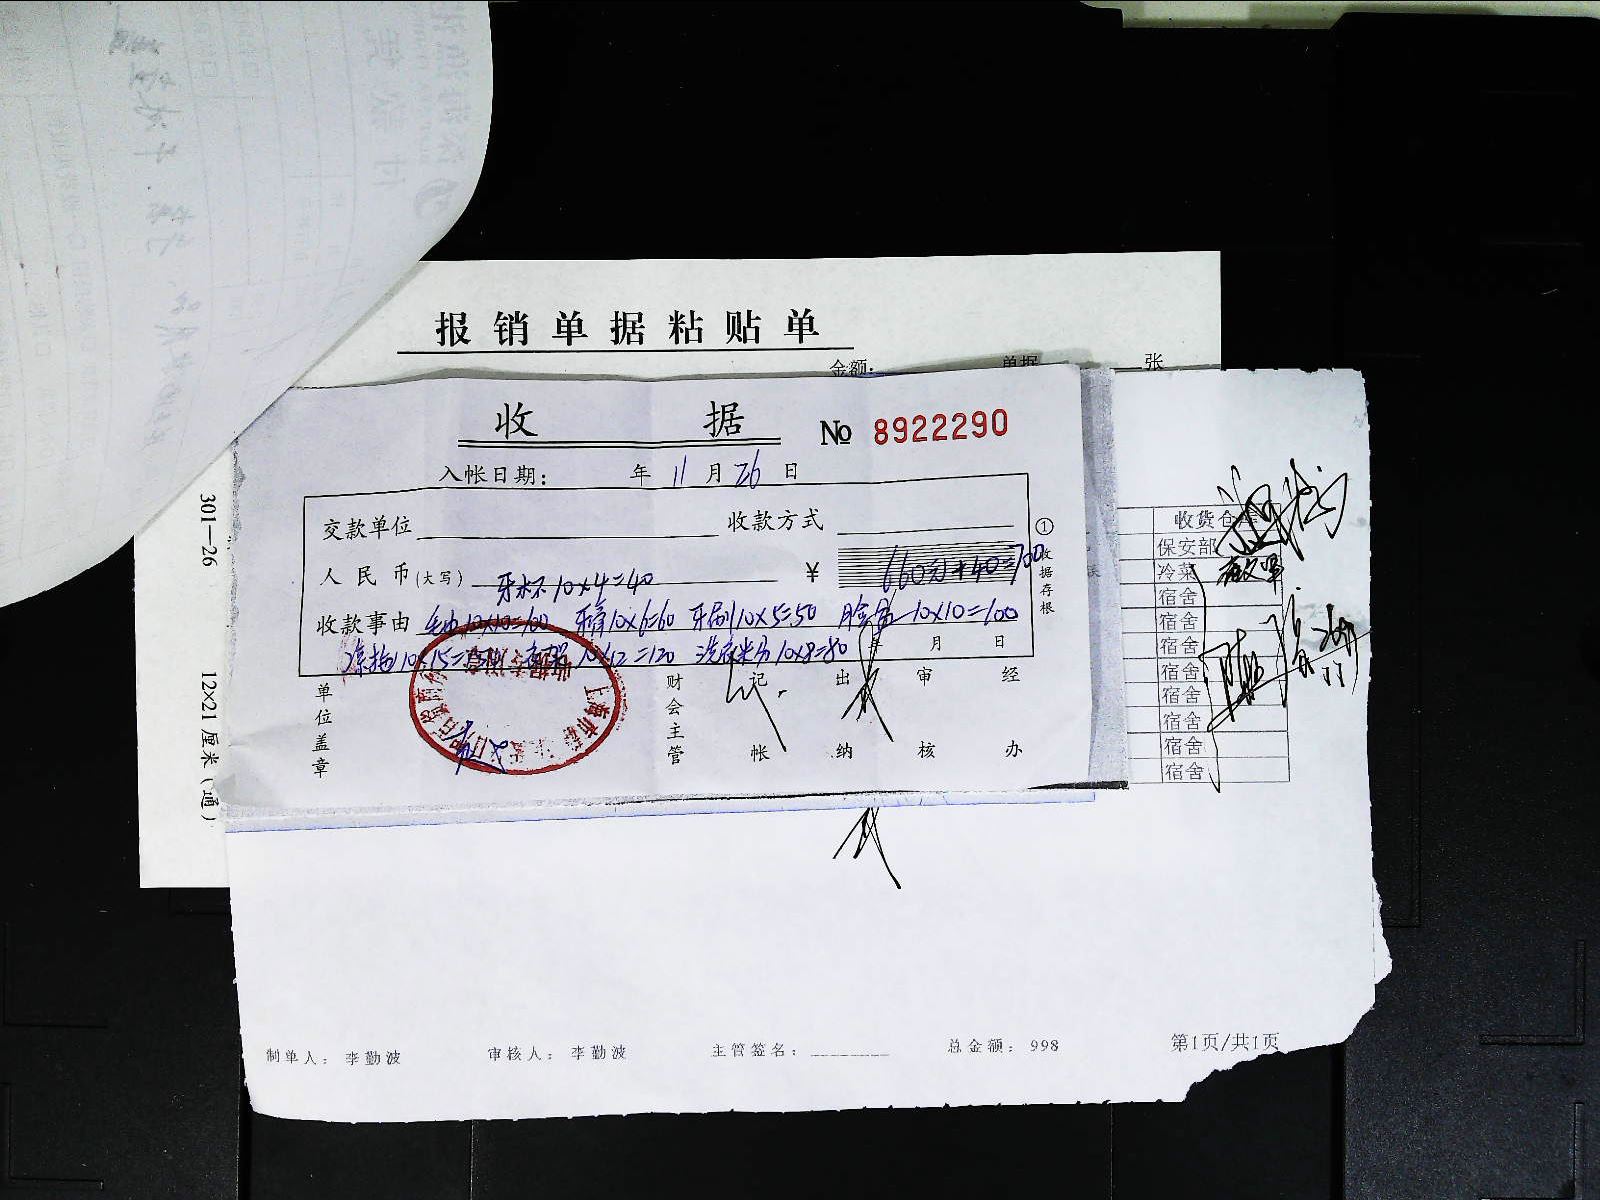 报销单据粘贴单
金额: 单据 张
收 据 № 8922290
入帐日期: 年 11 月 26 日
交款单位 收款方式
人民币(大写) 牙杯 10×4=40 ¥ 660元+40=700
收款事由 毛巾10×10=100 牙膏10×6=60 牙刷10×5=50 脸盆10×10=100
凉拖10×15= 10×12=120 洗衣粉10×8=80
年 月 日
单位盖章 财会主管 记帐 出纳 审核 经办
①收据存根
301—26
12×21厘米(通)
收货仓库
保安部
冷菜
宿舍
宿舍
宿舍
宿舍
宿舍
宿舍
宿舍
宿舍
制单人: 李勤波 审核人: 李勤波 主管签名: 总金额: 998 第1页/共1页